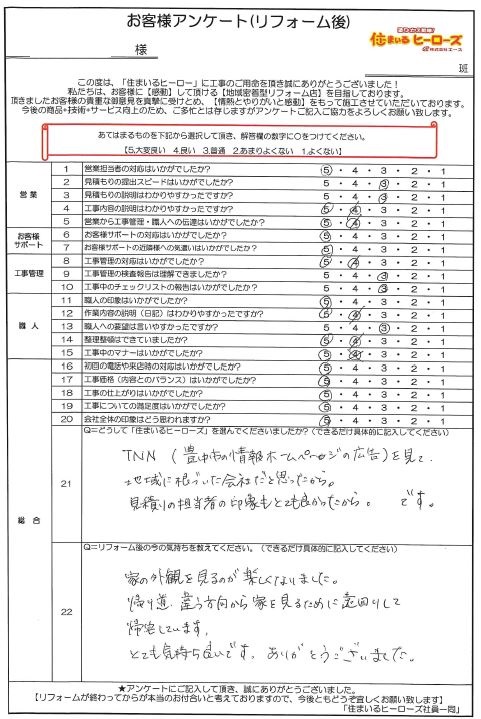 お客様アンケート(リフォーム後)
塗り替え職隊!
住まいるヒーローズ
㈱株式会社エース
様
班
この度は、「住まいるヒーロー」に工事のご用命を頂き誠にありがとうございました!
私たちは、お客様に【感動】して頂ける【地域密着型リフォーム店】を目指しております。
頂きましたお客様の貴重な御意見を真摯に受けとめ、【情熱とやりがいと感動】をもって施工させていただいております。
今後の商品+技術+サービス向上のため、ご多忙とは存じますがアンケートご記入ご協力をよろしくお願い致します。
あてはまるものを下記から選択して頂き、解答欄の数字に○をつけてください。
【5.大変良い 4.良い 3.普通 2.あまりよくない 1.よくない】
営業
1 営業担当者の対応はいかがでしたか? 5・4・3・2・1
2 見積もりの提出スピードはいかがでしたか? 5・4・3・2・1
3 見積もりの説明はわかりやすかったですか? 5・4・3・2・1
4 工事内容の説明はわかりやすかったですか? 5・4・3・2・1
5 営業から工事管理・職人への伝達はいかがでしたか? 5・4・3・2・1
お客様サポート
6 お客様サポートの対応はいかがでしたか? 5・4・3・2・1
7 お客様サポートの近隣様への気遣いはいかがでしたか? 5・4・3・2・1
工事管理
8 工事管理の対応はいかがでしたか? 5・4・3・2・1
9 工事管理の検査報告は理解できましたか? 5・4・3・2・1
10 工事中のチェックリストの報告はいかがでしたか? 5・4・3・2・1
職人
11 職人の印象はいかがでしたか? 5・4・3・2・1
12 作業内容の説明(日記)はわかりやすかったですか? 5・4・3・2・1
13 職人への要望は言いやすかったですか? 5・4・3・2・1
14 整理整頓はできていましたか? 5・4・3・2・1
15 工事中のマナーはいかがでしたか? 5・4・3・2・1
総合
16 初回の電話や来店時の対応はいかがでしたか? 5・4・3・2・1
17 工事価格(内容とのバランス)はいかがでしたか? 5・4・3・2・1
18 工事の仕上がりはいかがでしたか? 5・4・3・2・1
19 工事についての満足度はいかがでしたか? 5・4・3・2・1
20 会社全体の印象はどう思われますか? 5・4・3・2・1
21 Q=どうして「住まいるヒーローズ」を選んでくださいましたか?(できるだけ具体的に記入してください)
TNN(豊中市の情報ホームページの広告)を見て、
地域に根づいた会社だと思ったから。
見積りの担当者の印象もとても良かったから。 です。
22 Q=リフォーム後の今の気持ちを教えてください。(できるだけ具体的に記入してください)
家の外観を見るのが楽しくなりました。
帰り道、違う方向から家を見るために遠回りして
帰宅しています。
とても気持ち良いです。ありがとうございました。
★アンケートにご記入して頂き、誠にありがとうございました。
【リフォームが終わってからが本当のお付合いと考えておりますので、今後ともどうぞ宜しくお願い致します】
「住まいるヒーローズ社員一同」